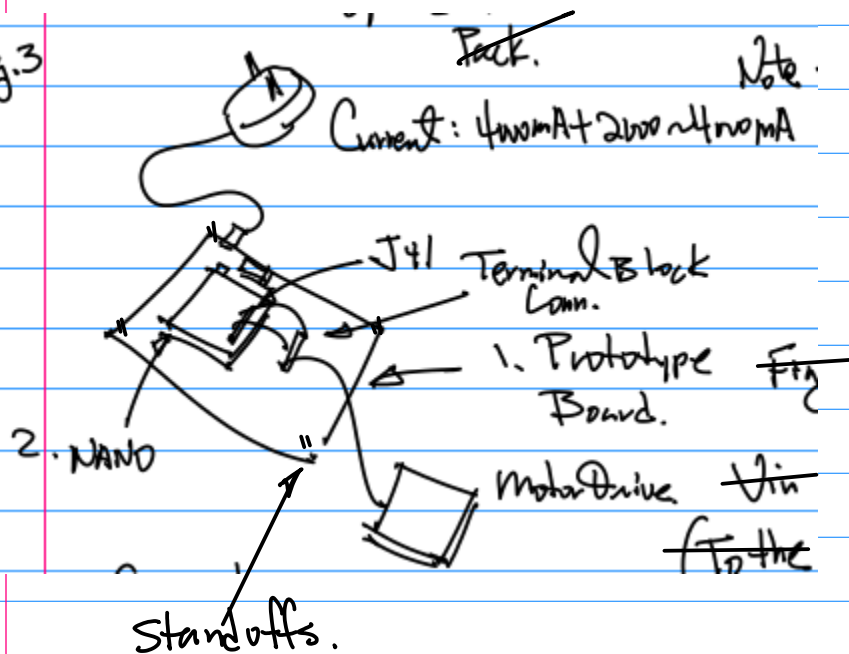 g.3
Pack.
Note
Current: 4000mA+2000~4000mA
J41
Terminal Block
Conn.
1. Prototype
Board.
2. NANO
Motor Drive
Vin
(To the
Standoffs.